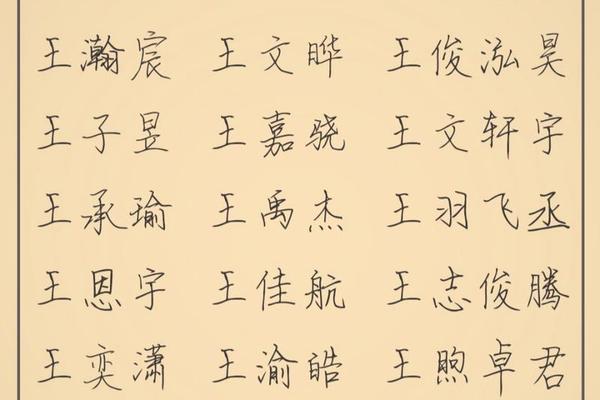 王瀚宸 王文晔 王俊泓昊
王子昱 王嘉骁 王文轩宇
王承瑜 王禹杰 王羽飞丞
王恩宇 王佳航 王志俊腾
王奕潇 王渝皓 王煦卓君